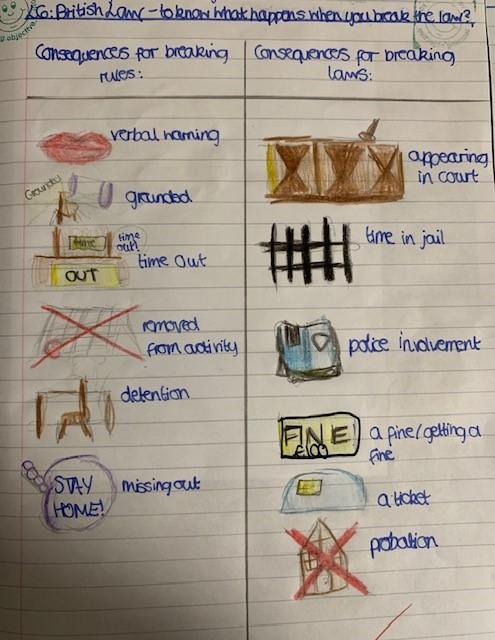 LO: British Law - to know what happens when you break the law?
objective
Consequences for breaking
rules:
verbal warning
Grounded
grounded
time
out!
time
OUT
time Out
removed
from activity
detention
STAY
HOME!
missing out
Consequences for breaking
laws:
appearing
in court
time in jail
police involvement
FINE
£100
a fine/getting a
fine
a ticket
probation